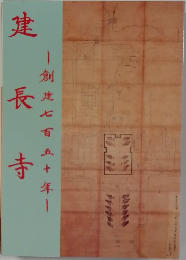 建長寺
―創建七百五十年―